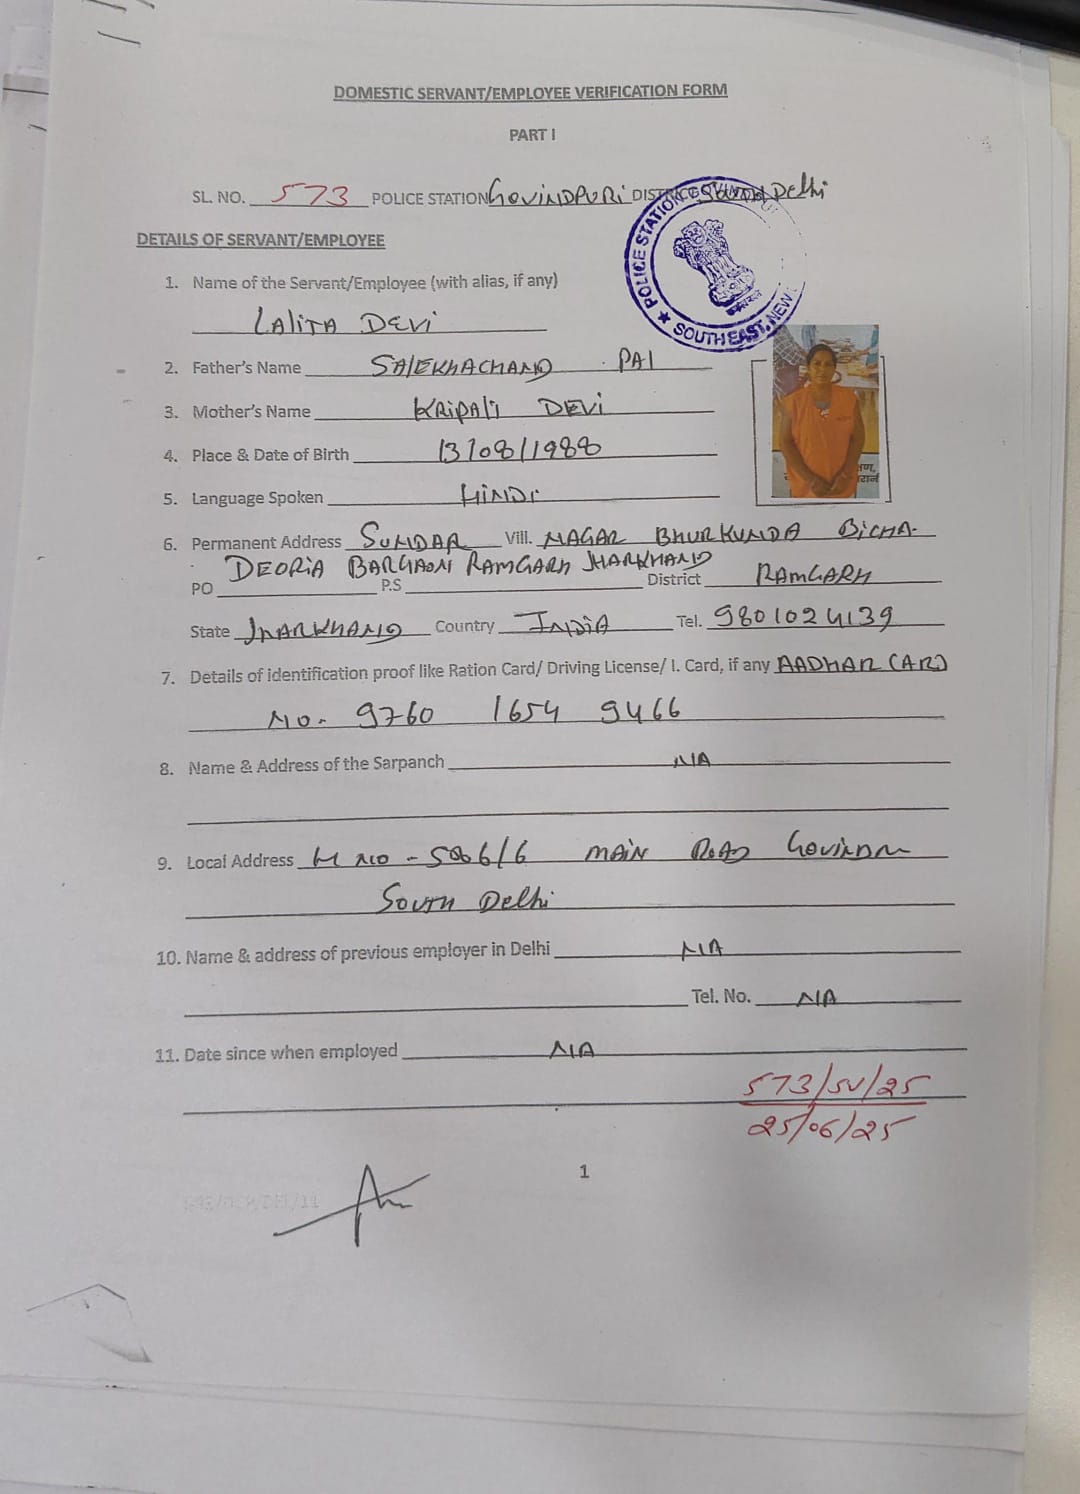 DOMESTIC SERVANT/EMPLOYEE VERIFICATION FORM
PART I
SL. NO. 573 POLICE STATION GOVINDPURI DISTRICT South Delhi
POLICE STATION GOVINDPURI
SOUTH EAST, NEW
DETAILS OF SERVANT/EMPLOYEE
1. Name of the Servant/Employee (with alias, if any)
LALITA DEVI
2. Father's Name SALEKHACHAND PAL
3. Mother's Name KRIPALI DEVI
4. Place & Date of Birth 13/08/1988
5. Language Spoken HINDI
6. Permanent Address SUNDAR Vill. NAGAR BHURKUNDA BICHA-
DEORIA BARGAON RAMGARH JHARKHAND
PO P.S District RAMGARH
State JHARKHAND Country INDIA Tel. 9801024139
7. Details of identification proof like Ration Card/ Driving License/ I. Card, if any AADHAR CARD
NO. 9760 1654 9466
8. Name & Address of the Sarpanch NIA
9. Local Address H NO - 6/6 MAIN ROAD
South Delhi
10. Name & address of previous employer in Delhi NIA
Tel. No. NIA
11. Date since when employed NIA
573/SV/25
25/06/25
1